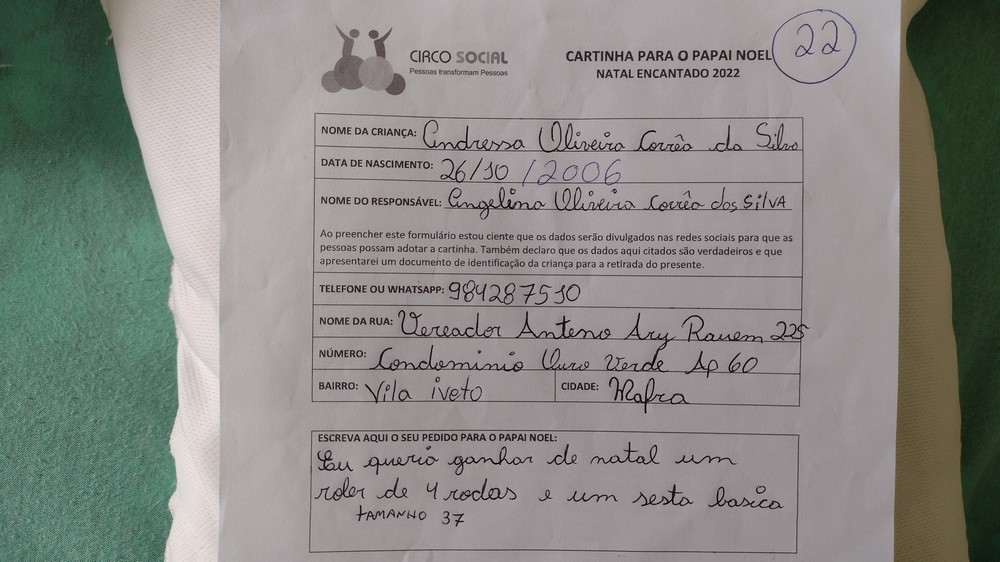 CIRCO SOCIAL
Pessoas transformam Pessoas
CARTINHA PARA O PAPAI NOEL
NATAL ENCANTADO 2022
22
NOME DA CRIANÇA: Andressa Oliveira Corrêa da Silva
DATA DE NASCIMENTO: 26/10/2006
NOME DO RESPONSÁVEL: Angelina Oliveira Corrêa dos SilVA
Ao preencher este formulário estou ciente que os dados serão divulgados nas redes sociais para que as
pessoas possam adotar a cartinha. Também declaro que os dados aqui citados são verdadeiros e que
apresentarei um documento de identificação da criança para a retirada do presente.
TELEFONE OU WHATSAPP: 984287510
NOME DA RUA: Vereador Anteno Ary Rauem 225
NÚMERO: Condominio Ouro Verde Ap 60
BAIRRO: Vila iveto CIDADE: Mafra
ESCREVA AQUI O SEU PEDIDO PARA O PAPAI NOEL:
Eu queria ganhar de natal um
roler de 4 rodas e um sesta basica
tAMANHO 37